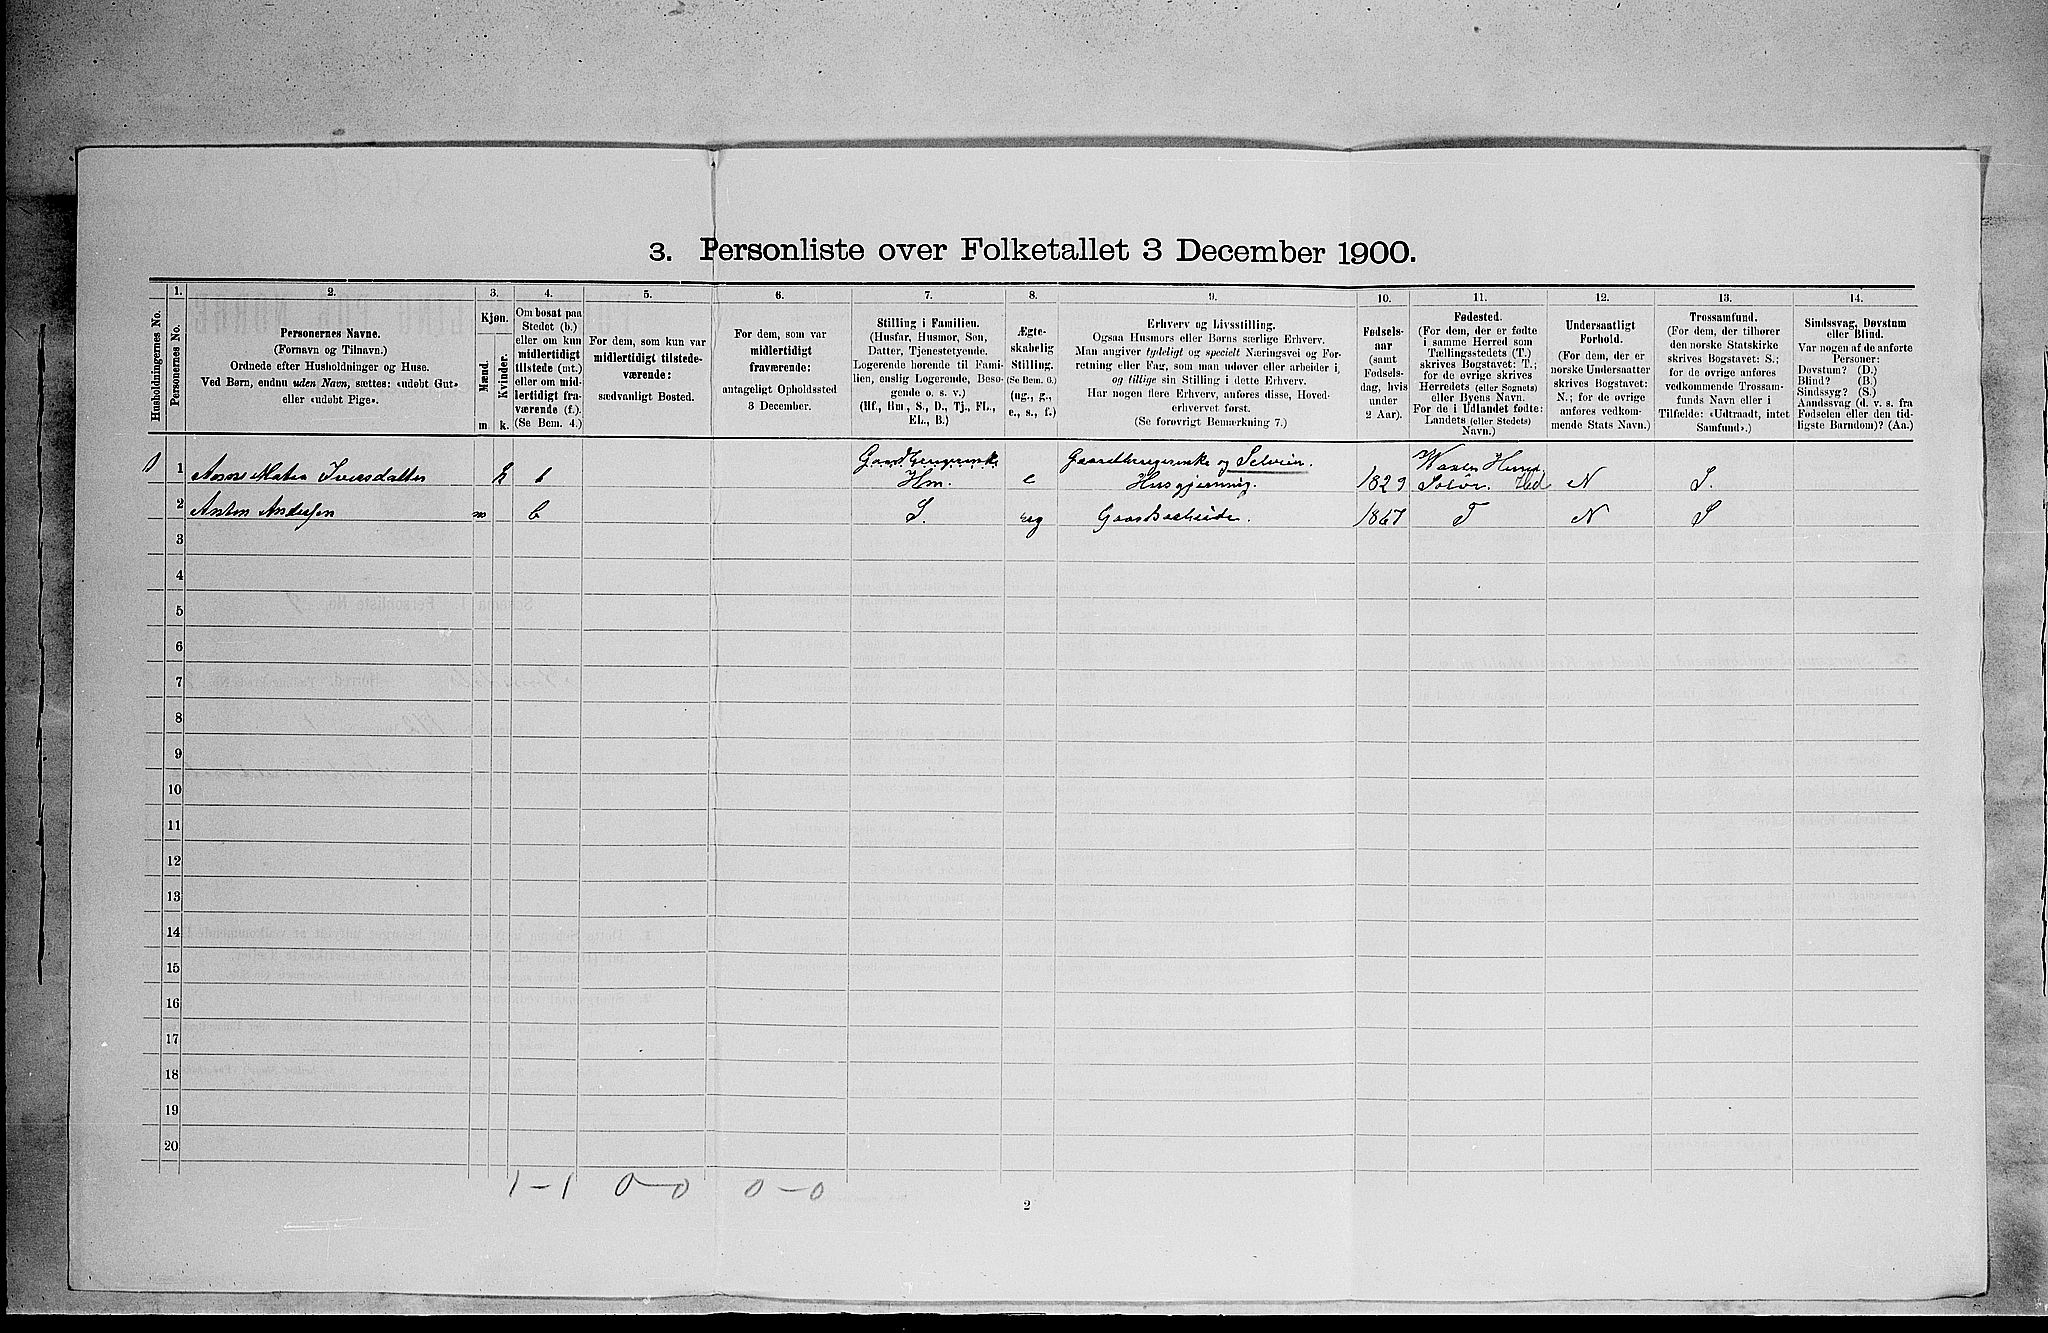 3. Personliste over Folketallet 3 December 1900.
Husholdningernes No.
1.
Personernes No.
2.
Personernes Navne.
(Fornavn og Tilnavn.)
Ordnede efter Husholdninger og Huse.
Ved Børn, endnu uden Navn, sættes: «udøbt Gut»
eller «udøbt Pige».
3.
Kjøn.
Mænd.
Kvinder.
m
k.
4.
Om bosat paa
Stedet (b.)
eller om kun
midlertidigt
tilstede (mt.)
eller om mid-
lertidigt fra-
værende (f.).
(Se Bem. 4.)
5.
For dem, som kun var
midlertidigt tilstede-
værende:
sædvanligt Bosted.
6.
For dem, som var
midlertidigt
fraværende:
antageligt Opholdssted
3 December.
7.
Stilling i Familien.
(Husfar, Husmor, Søn,
Datter, Tjenestetyende,
Logerende hørende til Fami-
lien, enslig Logerende, Besø-
gende o. s. v.)
(Hf., Hm., S., D., Tj., FL.,
EL., B.)
8.
Ægte-
skabelig
Stilling.
(Se Bem. 6.)
(ug., g.,
e., s., f.)
9.
Erhverv og Livsstilling.
Ogsaa Husmors eller Børns særlige Erhverv.
Man angiver tydeligt og specielt Næringsvei og For-
retning eller Fag, som man udøver eller arbeider i,
og tillige sin Stilling i dette Erhverv.
Har nogen flere Erhverv, anføres disse, Hoved-
erhvervet først.
(Se forøvrigt Bemærkning 7.)
10.
Fødsels-
aar
(samt
Fødsels-
dag, hvis
under
2 Aar).
11.
Fødested.
(For dem, der er fødte
i samme Herred som
Tællingsstedets (T.)
skrives Bogstavet: T.;
for de øvrige skrives
Herredets (eller Sognets)
eller Byens Navn.
For de i Udlandet fødte:
Landets (eller Stedets)
Navn.)
12.
Undersaatligt
Forhold.
(For dem, der er
norske Undersaatter
skrives Bogstavet:
N.; for de øvrige
anføres vedkom-
mende Stats Navn.)
13.
Trossamfund.
(For dem, der tilhører
den norske Statskirke
skrives Bogstavet: S.;
for de øvrige anføres
vedkommende Trossam-
funds Navn eller i
Tilfælde: «Udtraadt, intet
Samfund».)
14.
Sindssvag, Døvstum
eller Blind.
Var nogen af de anførte
Personer:
Døvstum? (D.)
Blind? (B.)
Sindssyg? (S.)
Aandssvag (d. v. s. fra
Fødselen eller den tid-
ligste Barndom)? (Aa.)
1 Iversdatter k b Hm. e Husgjerning. 1829 N S.
2 Anton Andersen m b S. ug Gaardsarbeide. 1867 T N S
3
4
5
6
7
8
9
10
11
12
13
14
15
16
17
18
19
20
1-1 0-0 0-0
2